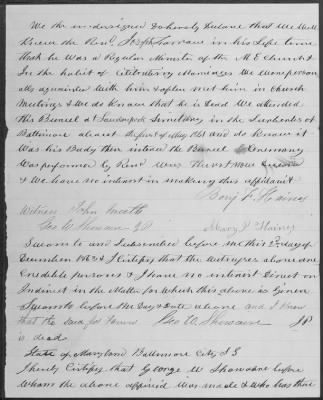 We the undersigned do hereby declare that we well
Knew the Revd Joseph in his life time
that he was a Regular Minister of the M E Church &
in the habit of Marriages we was person
ally aquainted with him & often met him in Church
Meetings & we do know that he is Dead we attended
the Burial at Cemetery in the Suburbs of
Baltimore about the first of May 1861 and do know it
was his Body then intered the Burial Ceremony
was performed by Revd Wm now
& we have no interest in making this affidavit
Benj F. Haines
Witness John Smith
Geo W Showacre JP Mary J Haines
Sworn to and Subscribed before me this day of
December I certify that the witnesses above are
Credible persons & I have no interest Direct or
Indirect in the matter for which this above is Given
Sworn to before the Day & Date above and I know
that the said Jos
is dead Geo W. Showacre JP
State of Maryland Baltimore City SS
I hereby Certify that George W Showacre before
whom the above affidavit was made & who has